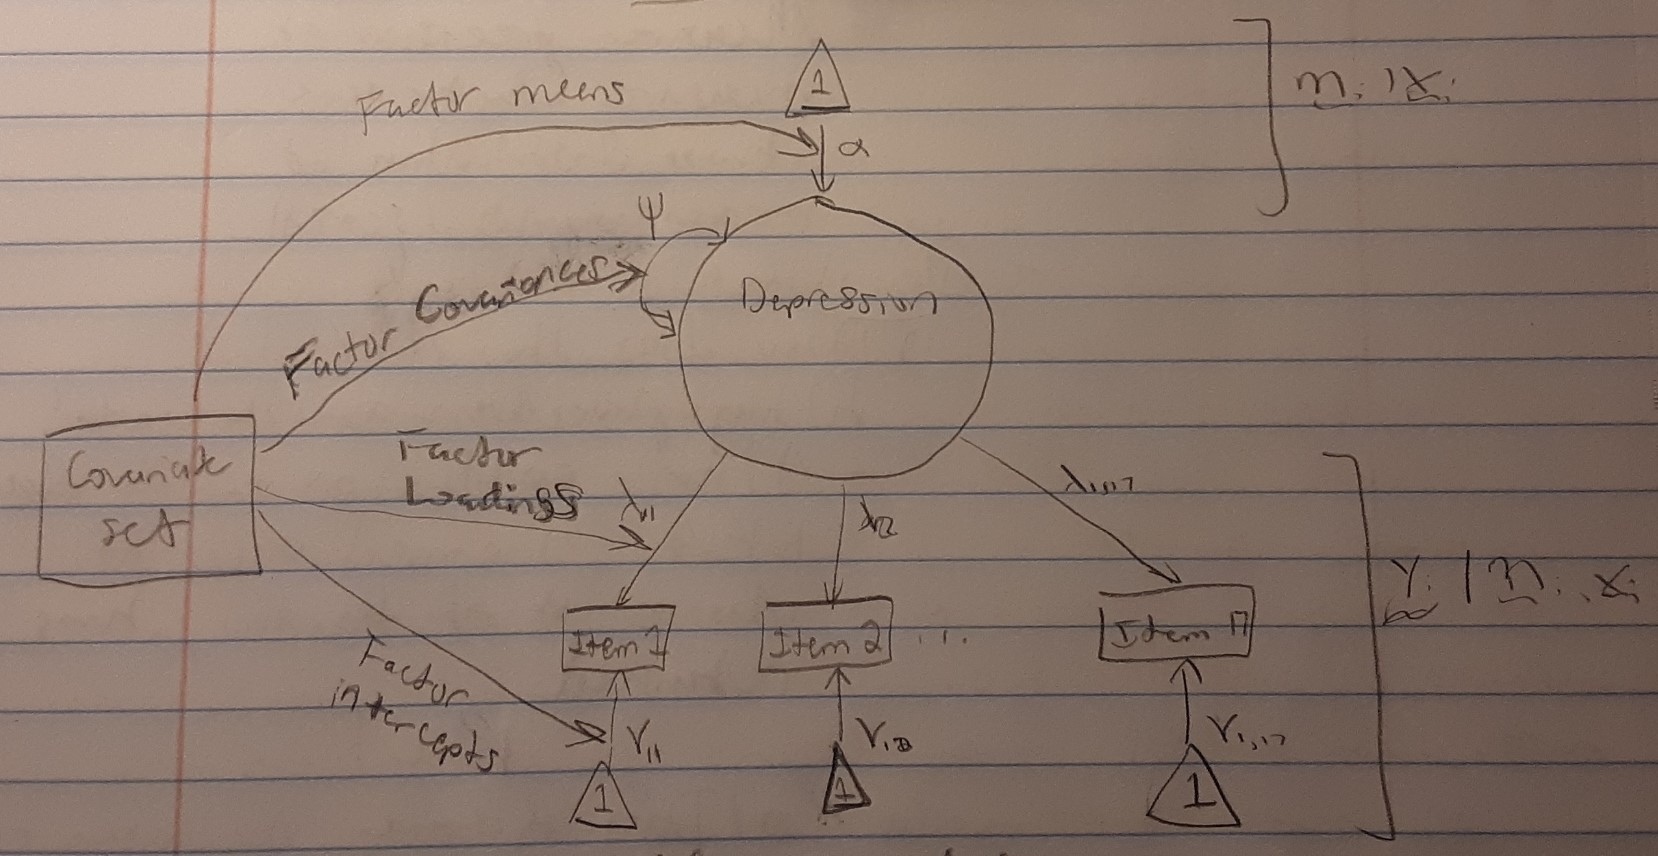 1
Factor means
α
η i | x i
ψ
Factor Covariances
Depression
Covariate
set
Factor
Loadings
λ11
λ12
λ1,17
Item 1
Item 2
...
Item 17
Y i | η i , x i
Factor
intercepts
ν11
ν12
ν1,17
1
1
1